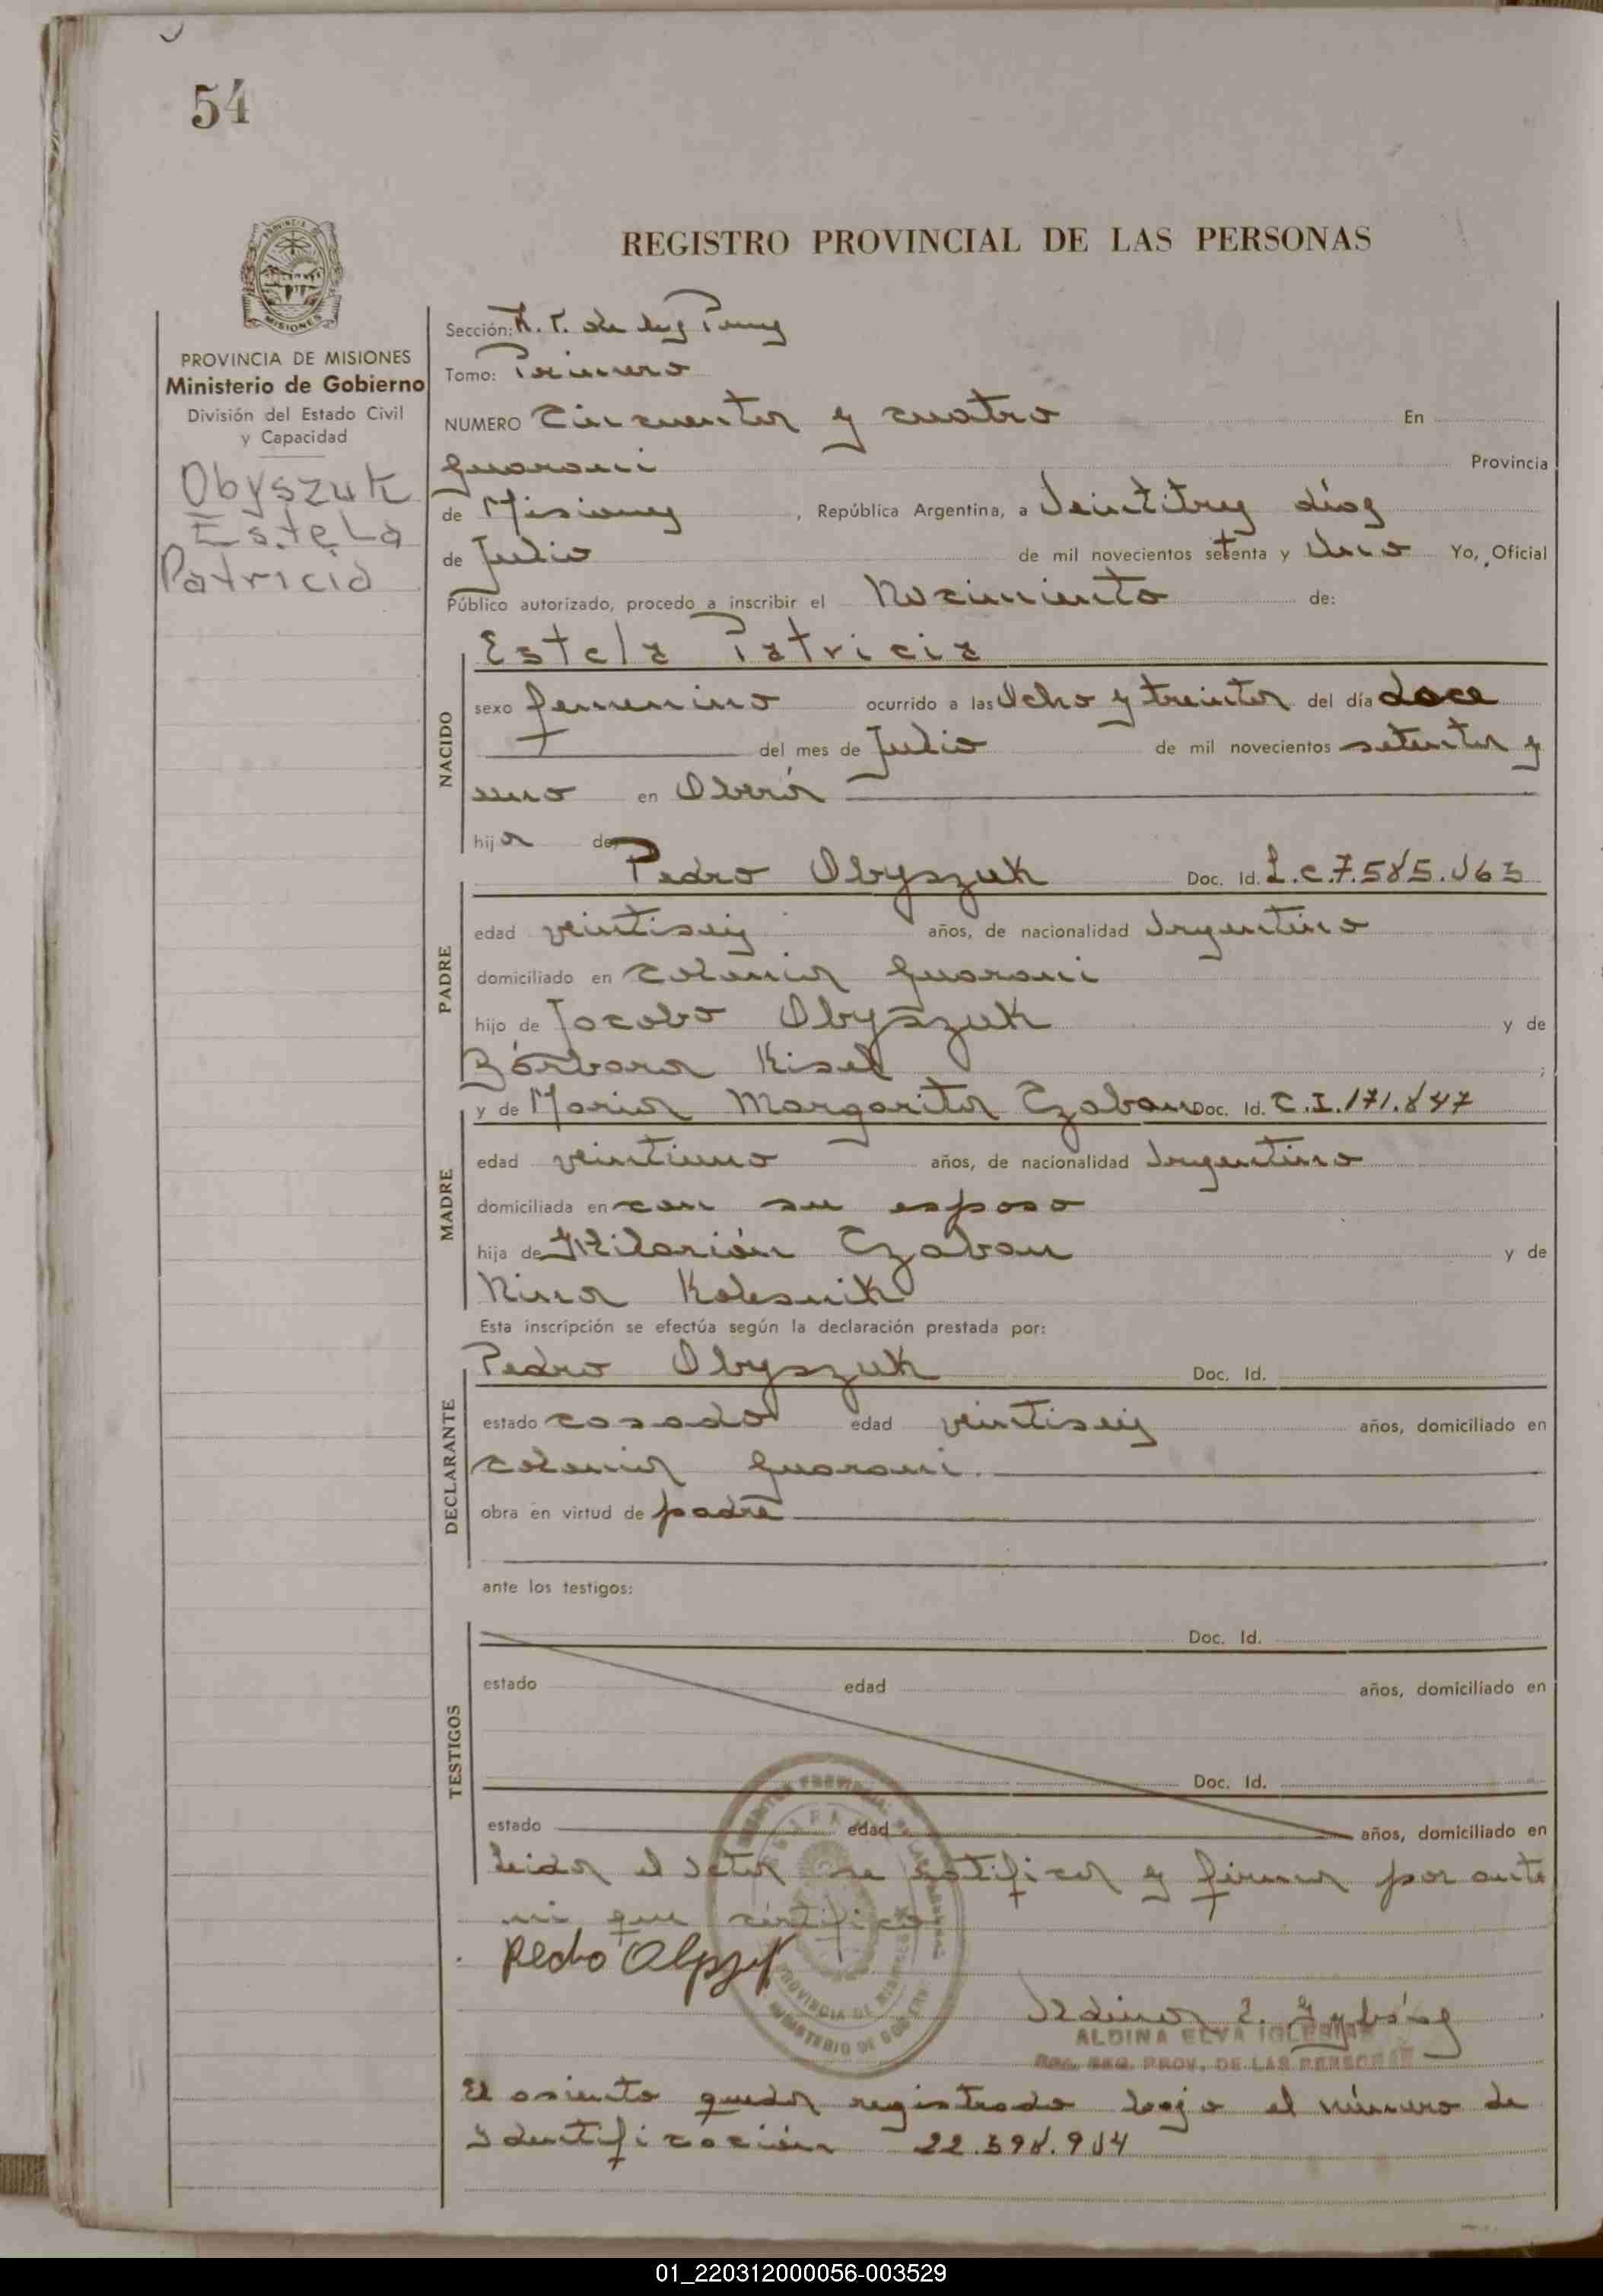 54
REGISTRO PROVINCIAL DE LAS PERSONAS
MISIONES
PROVINCIA DE MISIONES
Ministerio de Gobierno
División del Estado Civil
y Capacidad
Obyszuk
Estela
Patricia
Sección: R. P. de las
Tomo: Primero
NUMERO Cincuenta y cuatro En
Guarani Provincia
de Misiones , República Argentina, a Veintitres días
de Julio de mil novecientos setenta y Uno Yo, Oficial
Público autorizado, procedo a inscribir el Nacimiento de:
NACIDO
Estela Patricia
sexo femenino ocurrido a las Ocho y treinta del día doce
del mes de Julio de mil novecientos setenta y
uno en Oberá
hija de
PADRE
Pedro Obyszuk Doc. Id. L.E.7.585.063
edad veintiseis años, de nacionalidad Argentino
domiciliado en colonia Guarani
hijo de Jacobo Obyszuk y de
Bárbara Kisel ;
MADRE
y de Maria Margarita Czaban Doc. Id. C.I.171.847
edad veintiuno años, de nacionalidad Argentina
domiciliada en con su esposo
hija de Hilarión Czaban y de
Nina Kolesnik
Esta inscripción se efectúa según la declaración prestada por:
DECLARANTE
Pedro Obyszuk Doc. Id.
estado casado edad veintiseis años, domiciliado en
colonia Guarani.
obra en virtud de padre
ante los testigos:
TESTIGOS
Doc. Id.
estado edad años, domiciliado en
Doc. Id.
estado edad años, domiciliado en
Leida el Acta se ratifica y firma por ante
mi que certifico
Pedro
ALDINA ELVA IGLESIAS
REG. PROV. DE LAS PERSONAS
PROVINCIA DE MISIONES
MINISTERIO DE GOBIERNO
El asiento queda registrado bajo el número de
Identificación 22.398.904
01_220312000056-003529